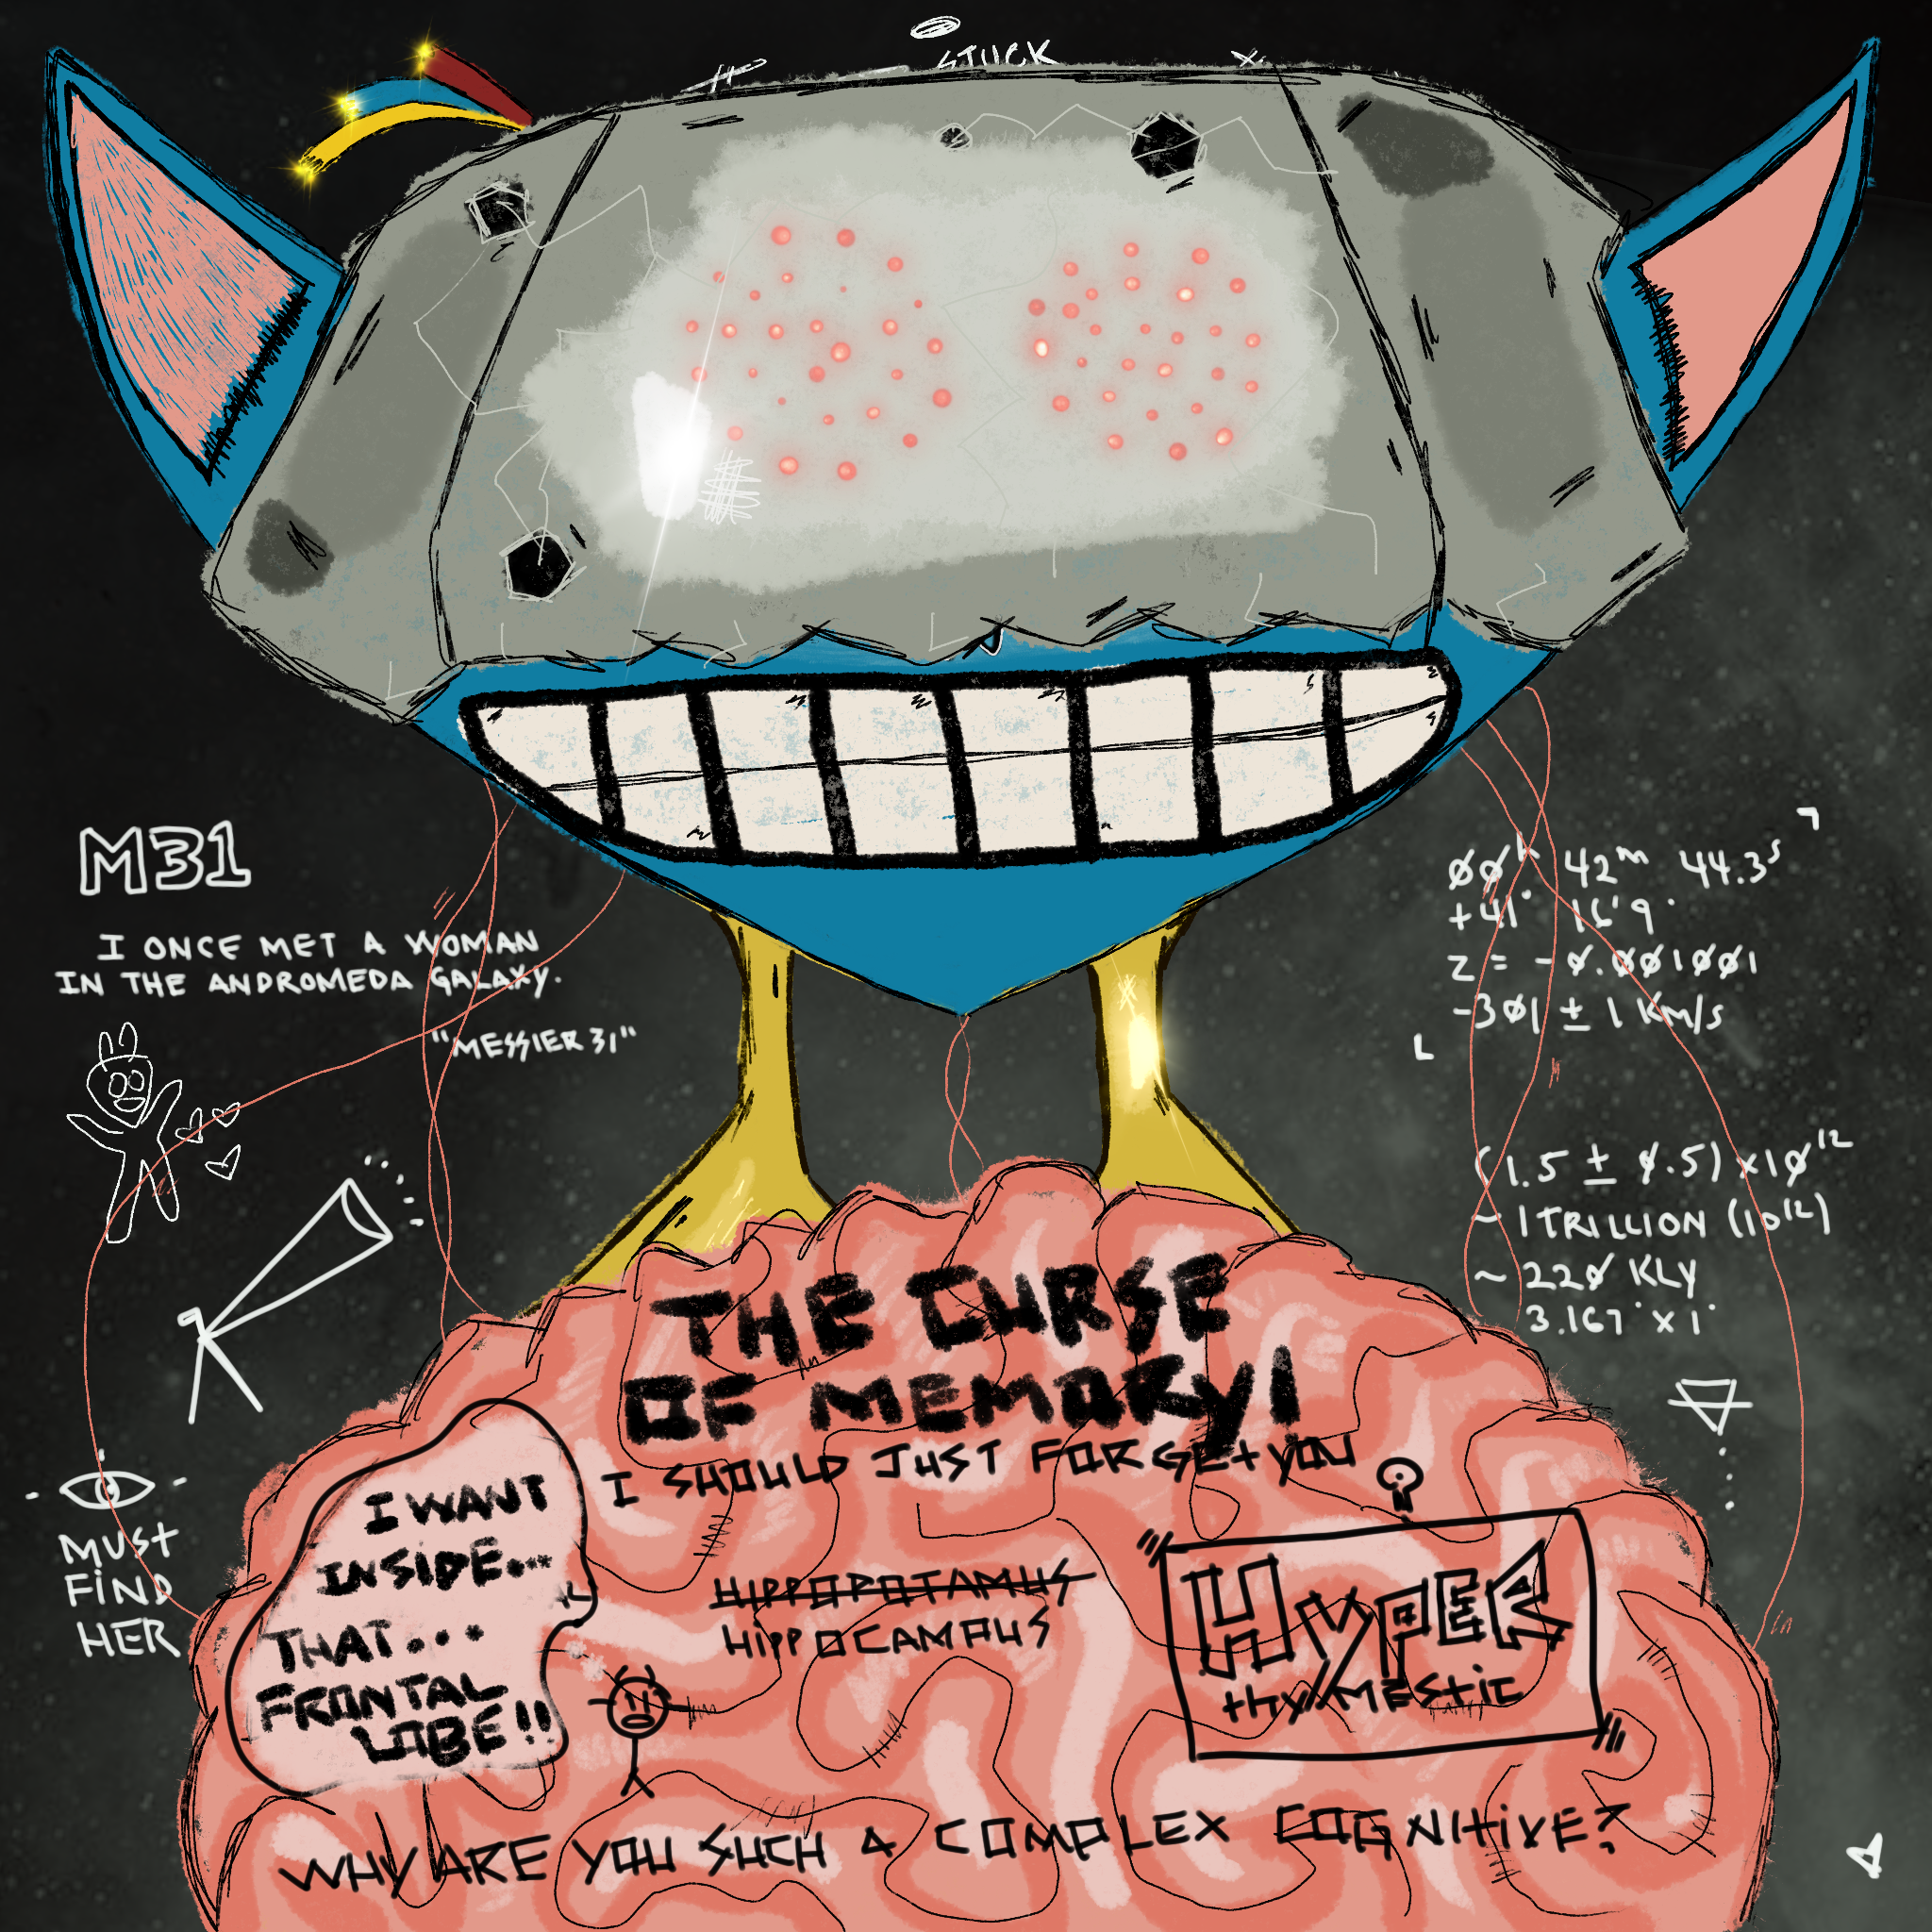 STUCK
M31
I ONCE MET A WOMAN
IN THE ANDROMEDA GALAXY.
"MESSIER 31"
MUST
FIND
HER
00h 42m 44.3s
+41° 16' 9"
z = -0.001001
-301 ± 1 KM/S
(1.5 ± 0.5) x10^12
~ 1 TRILLION (10^12)
~ 220 KLY
3.167° x 1°
THE CURSE
OF MEMORY!
I SHOULD JUST FORGET YOU
I WANT
INSIDE...
THAT...
FRONTAL
LOBE!!
HIPPOPOTAMUS
HIPPOCAMPUS
HYPER
thyMEStic
WHY ARE YOU SUCH A COMPLEX COGNITIVE?